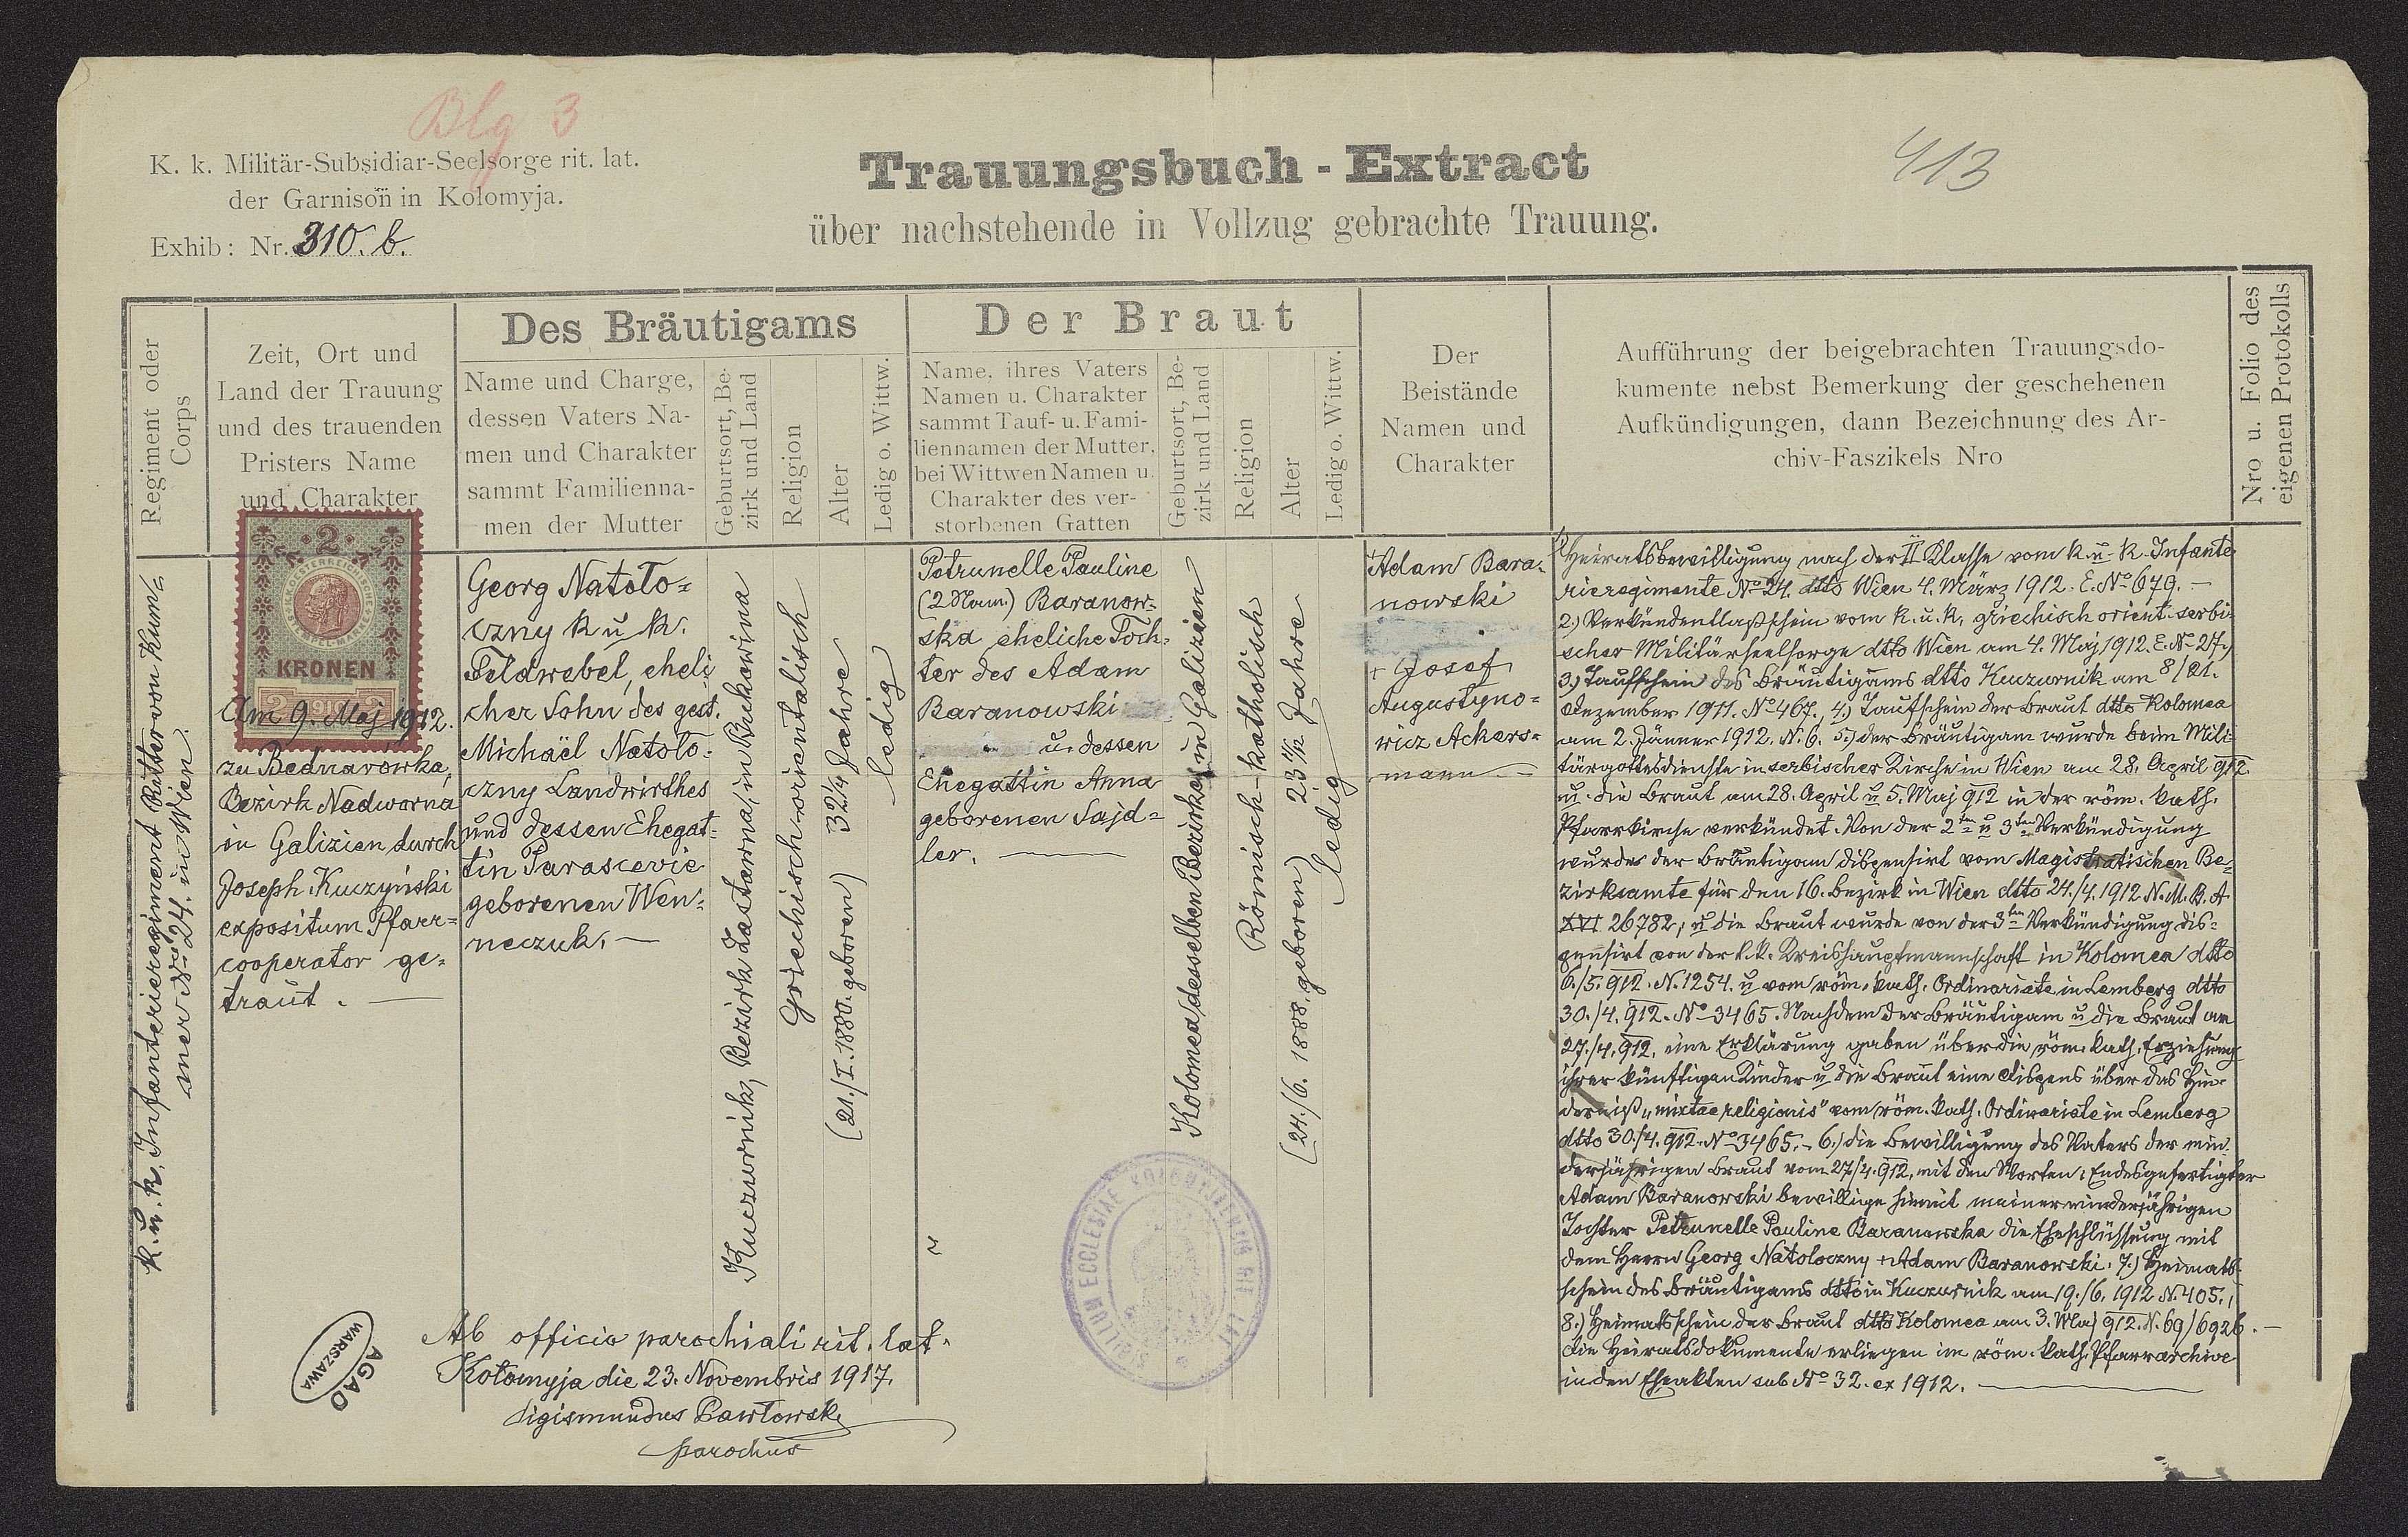 Blg 3
K. k. Militär-Subsidiar-Seelsorge rit. lat.
der Garnison in Kołomyja.
Exhib: Nr. 310. b.
Trauungsbuch - Extract
über nachstehende in Vollzug gebrachte Trauung.
413
Regiment oder
Corps
Zeit, Ort und
Land der Trauung
und des trauenden
Pristers Name
und Charakter
Des Bräutigams
Name und Charge,
dessen Vaters Na-
men und Charakter
sammt Familienna-
men der Mutter
Geburtsort, Be-
zirk und Land
Religion
Alter
Ledig o. Wittw.
Der Braut
Name, ihres Vaters
Namen u. Charakter
sammt Tauf- u. Fami-
liennamen der Mutter,
bei Wittwen Namen u.
Charakter des ver-
storbenen Gatten
Geburtsort, Be-
zirk und Land
Religion
Alter
Ledig o. Wittw.
Der
Beistände
Namen und
Charakter
Aufführung der beigebrachten Trauungsdo-
kumente nebst Bemerkung der geschehenen
Aufkündigungen, dann Bezeichnung des Ar-
chiv-Faszikels Nro
Nro u. Folio des
eigenen Protokolls
K. u. k. Infanterieregiment Ritter von Kum=
mer No 24. in Wien.
2
K.K. OESTERREICHISCHE
STEMPEL-MARKE
KRONEN
2 1910 2
Am 9. Maj 1912.
zu Bednarówka,
Bezirk Nadworna
in Galizien durch
Joseph Kuczyński
expositum Pfarr=
cooperator ge=
traut. —
Georg Natolo=
czny k u k.
Feldwebel, eheli
cher Sohn des gest.
Michaël Natolo=
czny Landwirthes
und dessen Ehegat=
tin Parascevie
geborenen Wen=
neczuk. —
Kuczurnik, Bezirk Zastawna, in Bukowina
Griechisch-orientalisch
32 1/4 Jahre
(21./I. 1880. geboren)
ledig
Petrunelle Pauline
(2 Nam.) Baranow-
ska eheliche Toch-
ter des Adam
Baranowski
u. dessen
Ehegattin Anna
geborenen Sajd=
ler. —
Kolomea desselben Bezirkes in Galizien
Römisch-katholisch
23 11/12 Jahre
(24./6. 1888. geboren)
ledig
+Adam Bara-
nowski
+ Josef
Augustyno=
wicz Achers=
mann —
1) Heiratsbewilligung nach der II Klasse vom k. u. k. Infante
rieregimente No 24. dtto Wien 4. März 1912. E. No 679. —
2.) Verkündentlaßschein vom k. u. k. griechisch orient. serbi-
scher Militärseelsorge dtto Wien am 4. Maj 1912. E. No 27.,
3.) Taufschein des Bräutigams dtto Kuczurnik am 8/21.
Dezember 1911. No 467., 4.) Taufschein der Braut dtto Kolomea
am 2. Jänner 1912. N. 6. 5.) der Bräutigam wurde beim Mili-
tärgottesdienste in serbischer Kirche in Wien am 28. April 912
u. die Braut am 28. April u 5. Maj 912 in der röm. kath.
Pfarrkirche verkündet. Von der 2ten u 3ten Verkündigung
wurde der Bräutigam dispensirt vom Magistratischen Be-
zirksamte für den 16. Bezirk in Wien dtto 24./4. 1912 N. M. B. A
XVI 26782, u die Braut wurde von der 3ten Verkündigung dis=
pensirt von der k. k. Kreishauptmannschaft in Kolomea dtto
6./5. 912. N. 1254. u vom röm. kath. Ordinariate in Lemberg dtto
30./4. 912. No 3465. Nachdem der Bräutigam u die Braut am
27./4. 912, eine Erklärung gaben über die röm. kath. Erziehung
ihrer künftigen Kinder u die Braut eine Dispens über das Hin-
derniß „mixtae religionis" vom röm. kath. Ordinariate in Lemberg
dtto 30./4. 912. No 3465. – 6.) die Bewilligung des Vaters der min-
derjährigen Braut vom 27/4. 912. mit den Worten: Endesgefertigter
Adam Baranowski bewillige hiemit meiner minderjährigen
Tochter Petrunelle Pauline Baranowska die Eheschlüssung mit
dem Herrn Georg Natoloczny + Adam Baranowski. 7.) Heimats-
schein des Bräutigams dtto in Kuczurnik am 19./6. 1912 N. 405.,
8.) Heimatsschein der Braut dtto Kolomea am 3. Maj 912. N. 69/6926. —
Die Heiratsdokumente erliegen im röm. kath. Pfarrarchive
in den Eheakten sub No 32. ex 1912. —
Ab officio parochiali rit. lat.
Kołomyja die 23. Novembris 1917.
Sigismundus Pawłowski
parochus
SIGILLUM ECCLESIAE KOLOMYJENSIS RIT. LAT.
AGAD
WARSZAWA